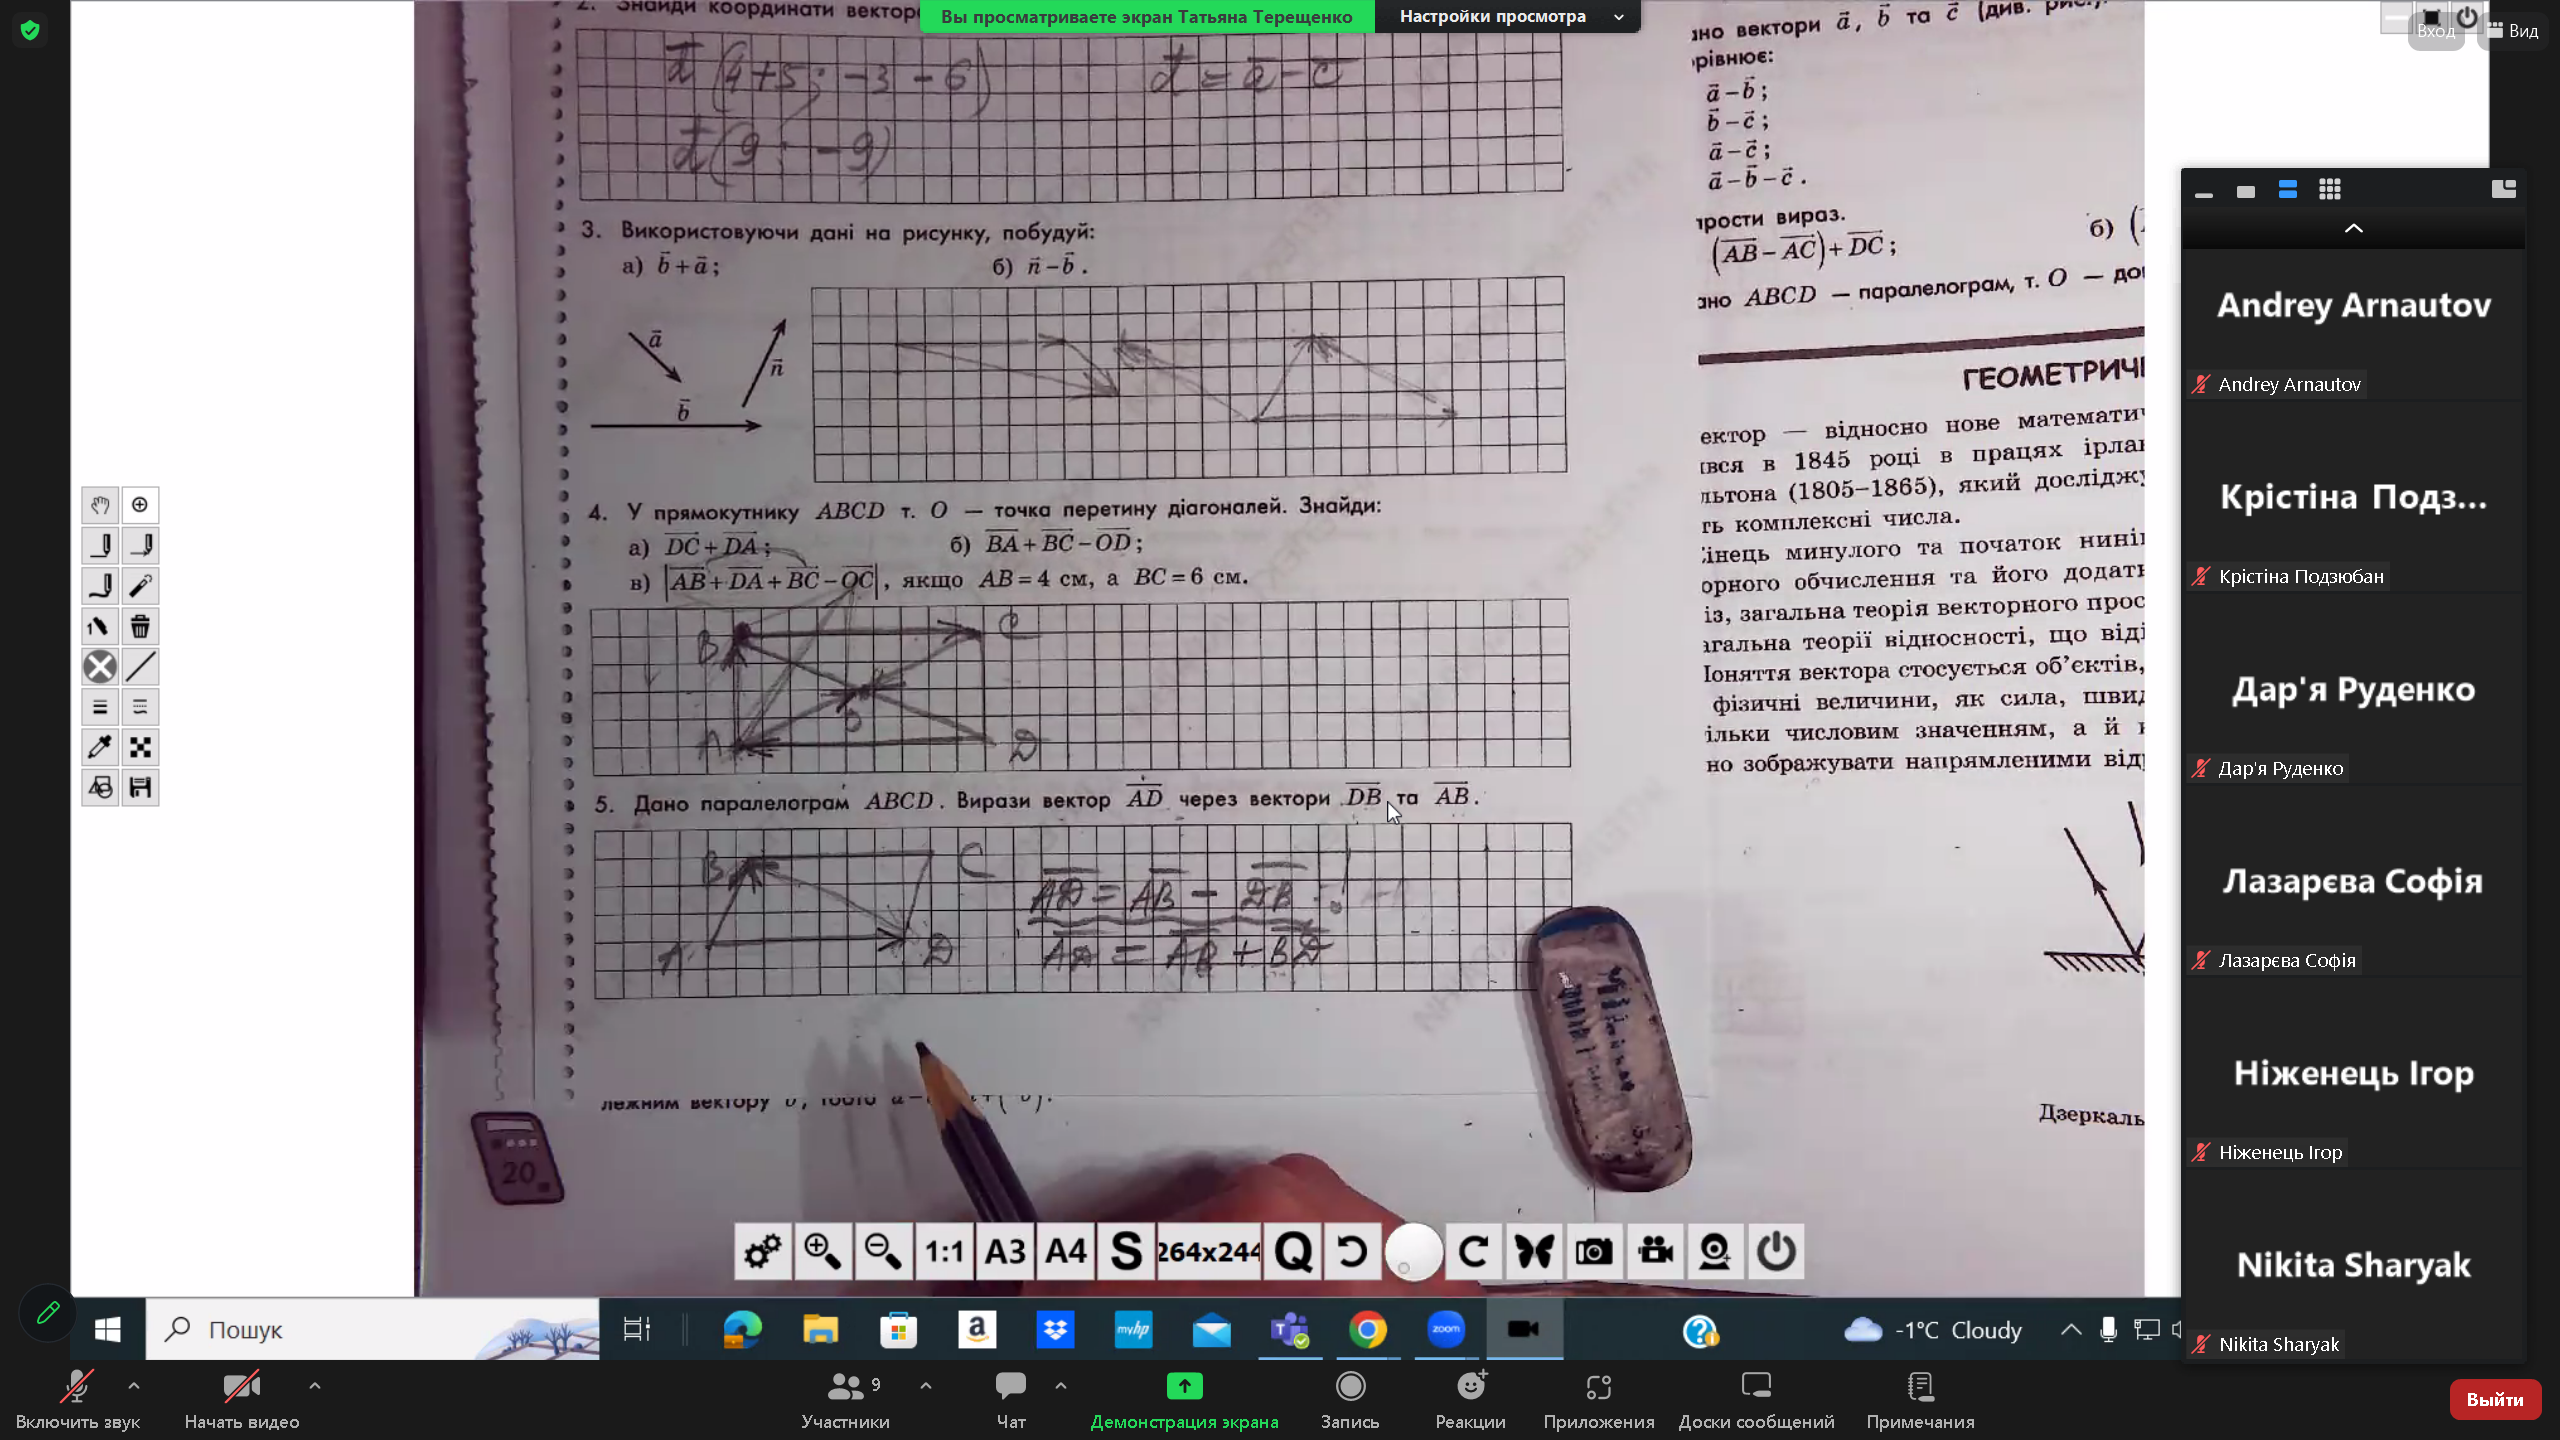 Вы просматриваете экран Татьяна Терещенко
Настройки просмотра
Вход
Вид
2. Знайди координати
d(4+5; -3-6)
d = a - c
d(9; -9)
3. Використовуючи дані на рисунку, побудуй:
а) b + a;
б) n - b.
a
n
b
4. У прямокутнику ABCD т. O — точка перетину діагоналей. Знайди:
а) DC + DA;
б) BA + BC - OD;
в) |AB + DA + BC - OC|, якщо AB = 4 см, а BC = 6 см.
B
C
O
A
D
5. Дано паралелограм ABCD. Вирази вектор AD через вектори DB та AB.
B
C
A
D
AD = AB - DB
AD = AB + BD
лежним вектору
20
вектори a, b та c (див.
a - b;
b - c;
a - c;
a - b - c.
вираз.
(AB - AC) + DC;
б)
ABCD — паралелограм, т. O —
— відносно нове
в 1845 році в працях
(1805–1865), який
комплексні числа.
минулого та початок
обчислення та його
загальна теорія векторного
теорії відносності, що
вектора стосується об’єктів,
фізичні величини, як сила,
числовим значенням, а й
зображувати напрямленими
1:1
A3
A4
S
264x244
Q
Andrey Arnautov
Andrey Arnautov
Крістіна Подз...
Крістіна Подзюбан
Дар'я Руденко
Дар'я Руденко
Лазарєва Софія
Лазарєва Софія
Ніженець Ігор
Ніженець Ігор
Nikita Sharyak
Nikita Sharyak
Пошук
a
myhp
zoom
-1°C Cloudy
Включить звук
Начать видео
Участники
9
Чат
Демонстрация экрана
Запись
Реакции
Приложения
Доски сообщений
Примечания
Выйти